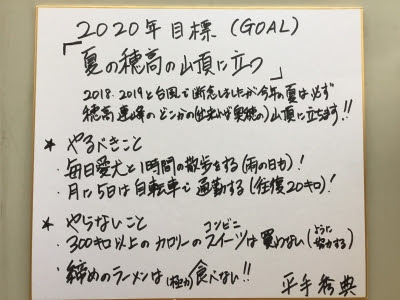 2020年目標 (GOAL)
「夏の穂高の山頂に立つ」
2018、2019と台風で断念しましたが今年の夏は必ず
穂高連峰のどこかの(出来れば奥穂の)山頂に立ちます!!
★ やるべきこと
・毎日愛犬と1時間の散歩をする(雨の日も)!
・月に5日は自転車で通勤する(往復20キロ)!
★ やらないこと
・300キロ以上のカロリーのスイーツは買わない(ように努力する)
コンビニ
・締めのラーメンは(極力)食べない!!
平手秀典